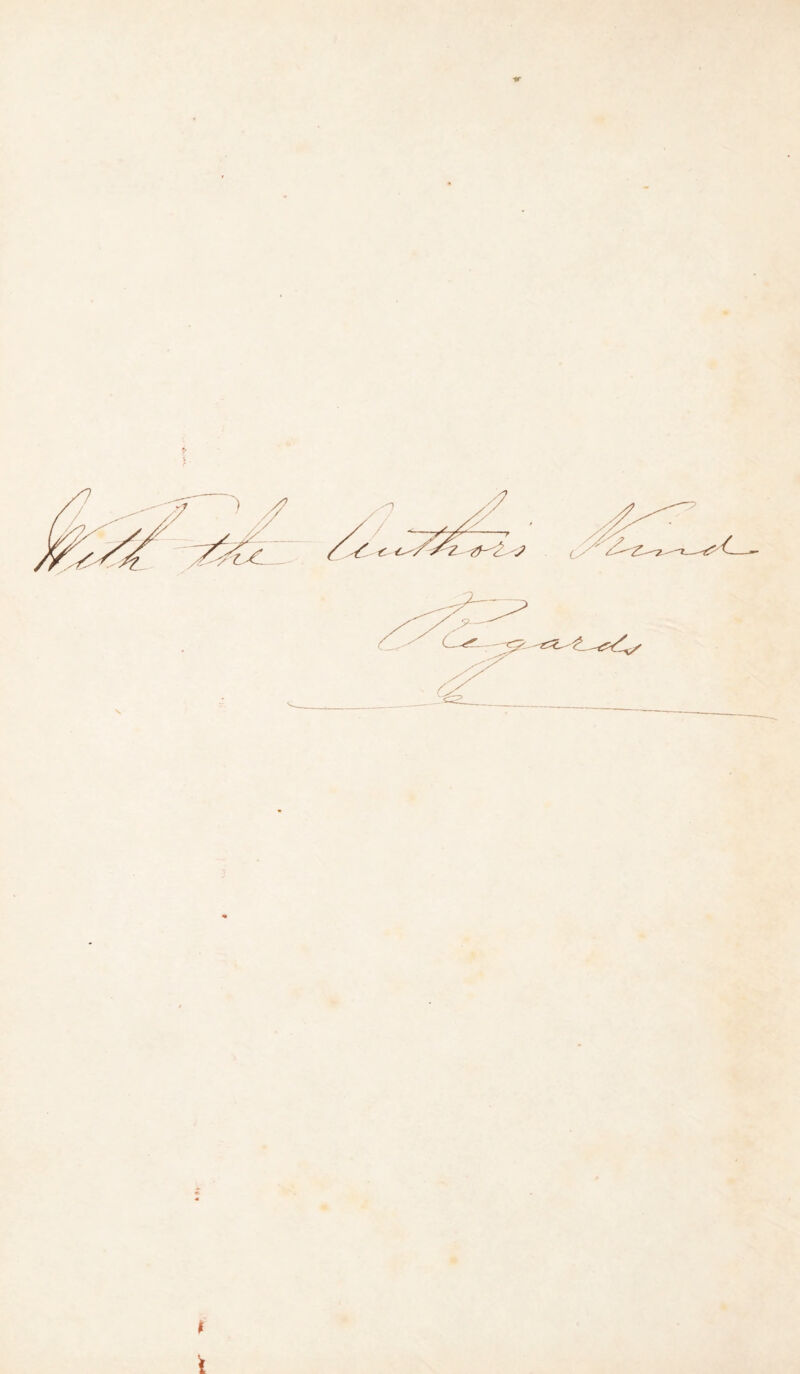 With the Author's Kind
Regards